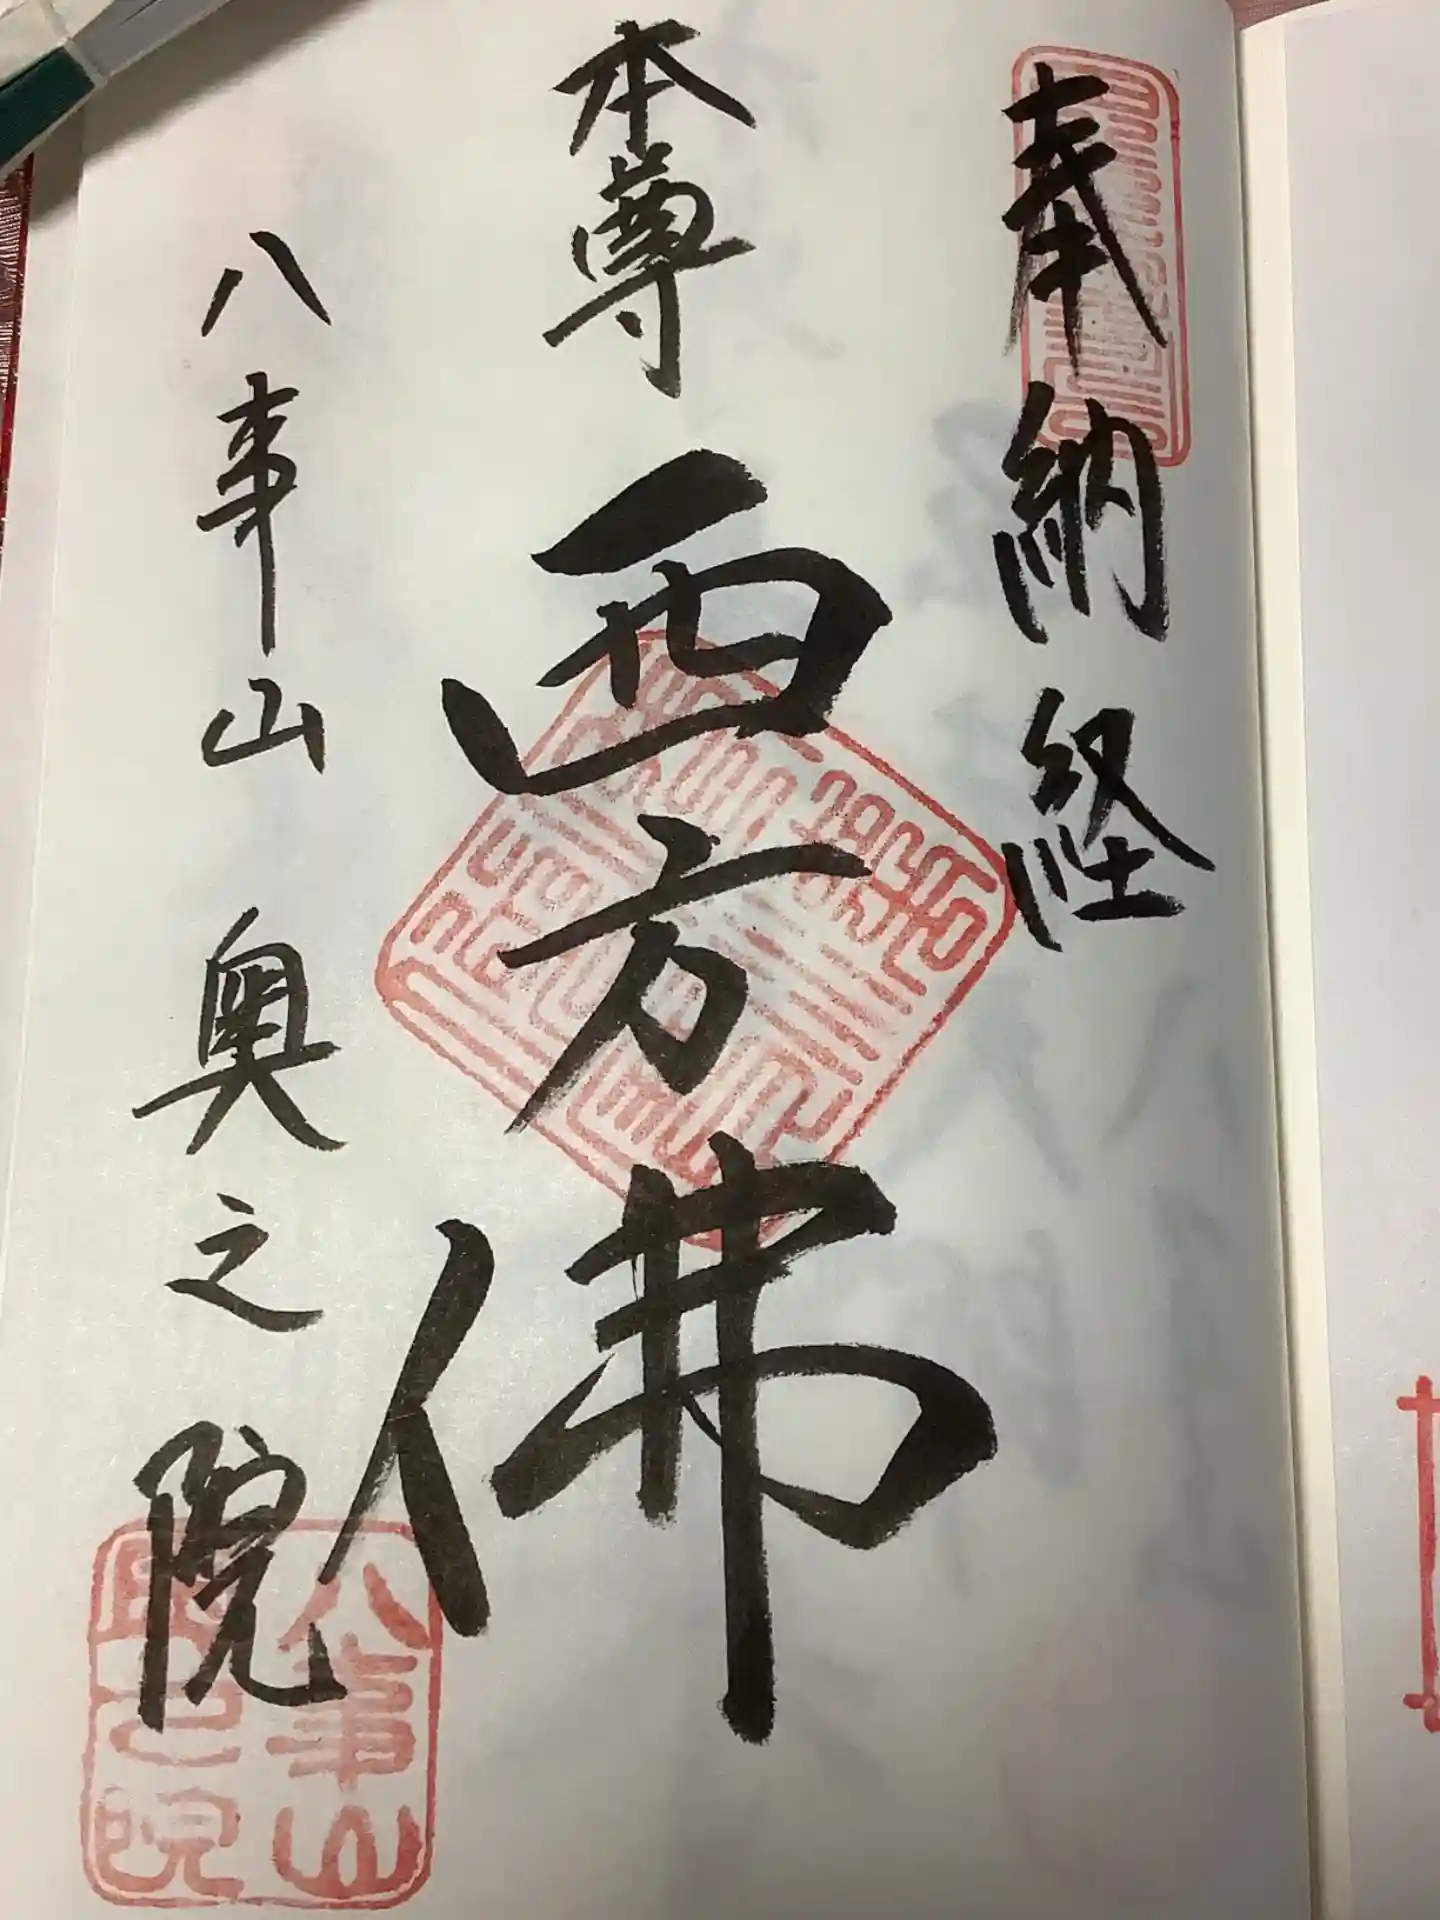 奉納経
本尊
西方佛
八事山奥之院
八事山
奥之院